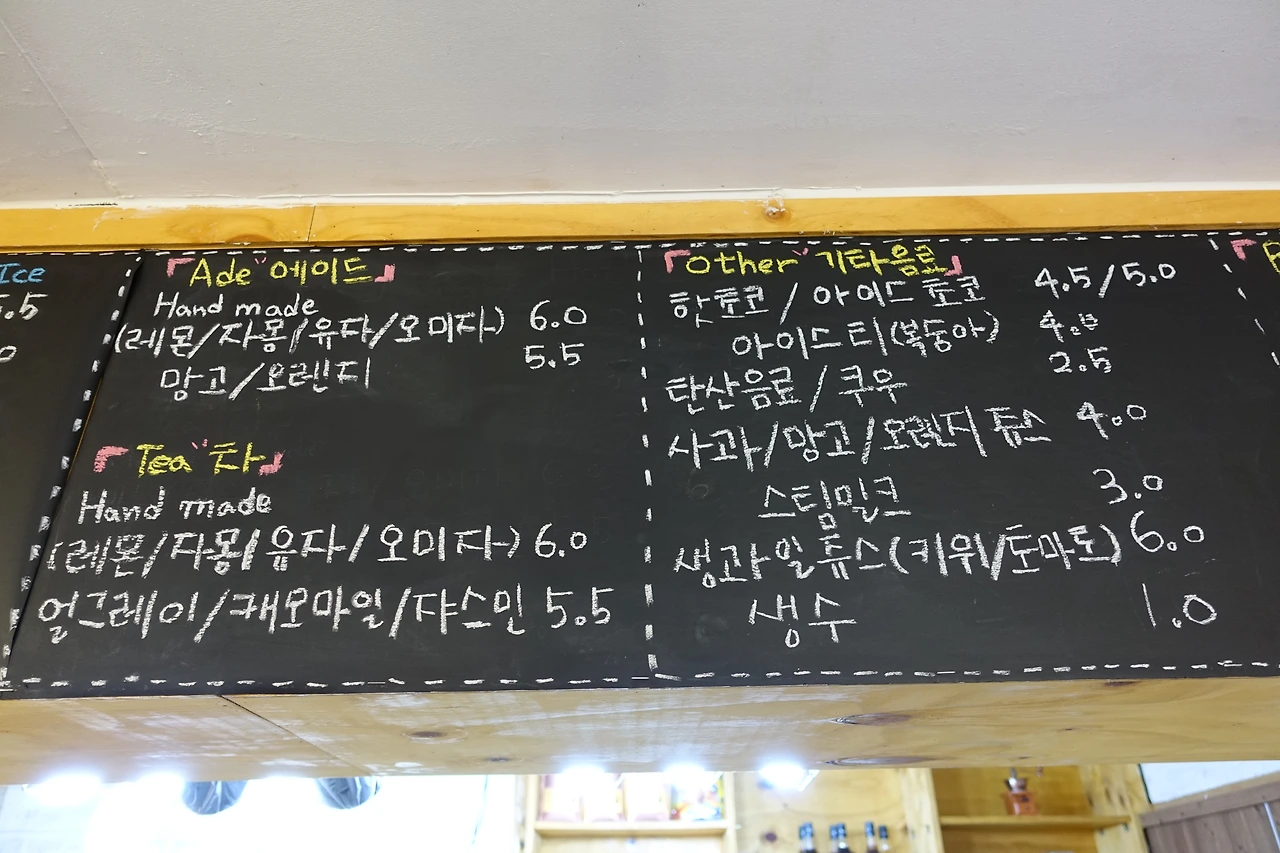 Ice
「Ade" 에이드」
Hand made
(레몬/자몽/유자/오미자) 6.0
망고/오렌지 5.5
「Tea" 차」
Hand made
(레몬/자몽/유자/오미자) 6.0
얼그레이/캐모마일/쟈스민 5.5
「Other" 기타음료」
핫쵸코 / 아이스 쵸코 4.5/5.0
아이스티(복숭아) 4.0
탄산음료 / 쿠우 2.5
사과/망고/오렌지 쥬스 4.0
스팀밀크 3.0
생과일쥬스(키위/토마토) 6.0
생수 1.0